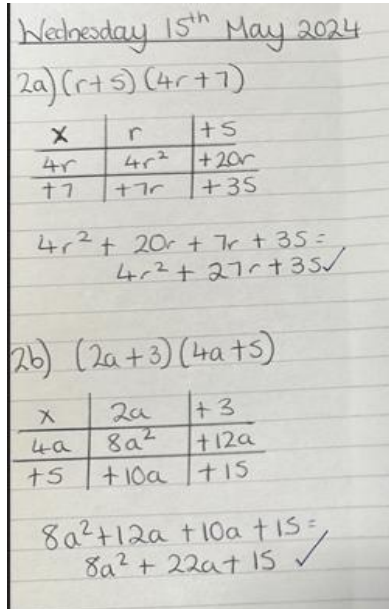 Wednesday 15th May 2024
2a) (r+5) (4r+7)
× | r | +5
4r | 4r² | +20r
+7 | +7r | +35
4r² + 20r + 7r + 35 =
4r² + 27r + 35 ✓
2b) (2a+3) (4a+5)
× | 2a | +3
4a | 8a² | +12a
+5 | +10a | +15
8a² + 12a + 10a + 15 =
8a² + 22a + 15 ✓